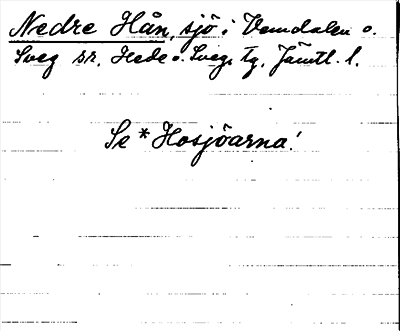 Nedre Hån, sjö i Vemdalen o.
Sveg sr, Hede o. Svegs tg, Jämtl. l.
Se *Hosjöarna!